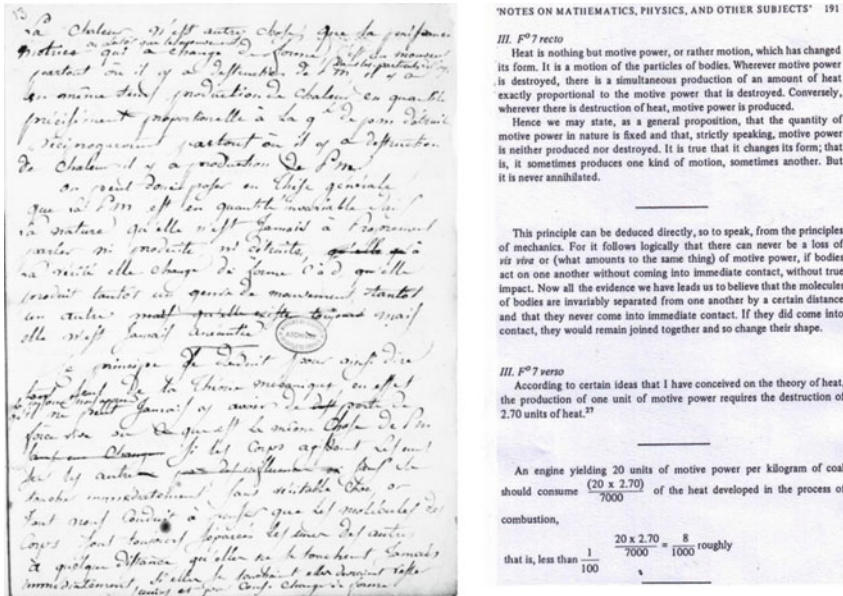 13
La chaleur n'est autre chose que la puissance
motrice ou plutôt que le mouvement qui a changé de forme c'est un mouvement
partout où il y a destruction de P.m. il y a
en même tems production de chaleur en quantité
précisément proportionnelle à la q^té de p.m. détruite
réciproquement partout où il y a destruction
de chaleur il y a production de P.m.
on peut donc poser en thèse générale
que la P.m. est en quantité invariable dans
la nature qu'elle n'est jamais à proprement
parler ni produite ni détruite, à
la vérité elle change de forme c.à.d. qu'elle
produit tantôt un genre de mouvement tantôt
un autre mais qu'elle existe toujours mais
elle n'est jamais anéantie
principe se déduit pour ainsi dire
de la théorie mécanique en effet
il ne peut jamais y avoir de perte de
force vive ou ce qui est la même chose de P.m.
si les corps agissent les uns
sur les autres sans se
toucher immédiatement sans véritable choc, or
tout nous conduit à penser que les molécules des
corps sont toujours séparées les unes des autres
à quelque distance, qu'elles ne se touchent jamais
immédiatement, si elles se touchaient elles devraient rester
unies et par cons. changer de forme
'NOTES ON MATHEMATICS, PHYSICS, AND OTHER SUBJECTS' 191
III. F° 7 recto
Heat is nothing but motive power, or rather motion, which has changed
its form. It is a motion of the particles of bodies. Wherever motive power
is destroyed, there is a simultaneous production of an amount of heat
exactly proportional to the motive power that is destroyed. Conversely,
wherever there is destruction of heat, motive power is produced.
Hence we may state, as a general proposition, that the quantity of
motive power in nature is fixed and that, strictly speaking, motive power
is neither produced nor destroyed. It is true that it changes its form; that
is, it sometimes produces one kind of motion, sometimes another. But
it is never annihilated.
This principle can be deduced directly, so to speak, from the principles
of mechanics. For it follows logically that there can never be a loss of
vis viva or (what amounts to the same thing) of motive power, if bodies
act on one another without coming into immediate contact, without true
impact. Now all the evidence we have leads us to believe that the molecules
of bodies are invariably separated from one another by a certain distance
and that they never come into immediate contact. If they did come into
contact, they would remain joined together and so change their shape.
III. F° 7 verso
According to certain ideas that I have conceived on the theory of heat,
the production of one unit of motive power requires the destruction of
2.70 units of heat.²⁷
An engine yielding 20 units of motive power per kilogram of coal
should consume (20 x 2.70)/7000 of the heat developed in the process of
combustion,
that is, less than 1/100 20 x 2.70/7000 = 8/1000 roughly